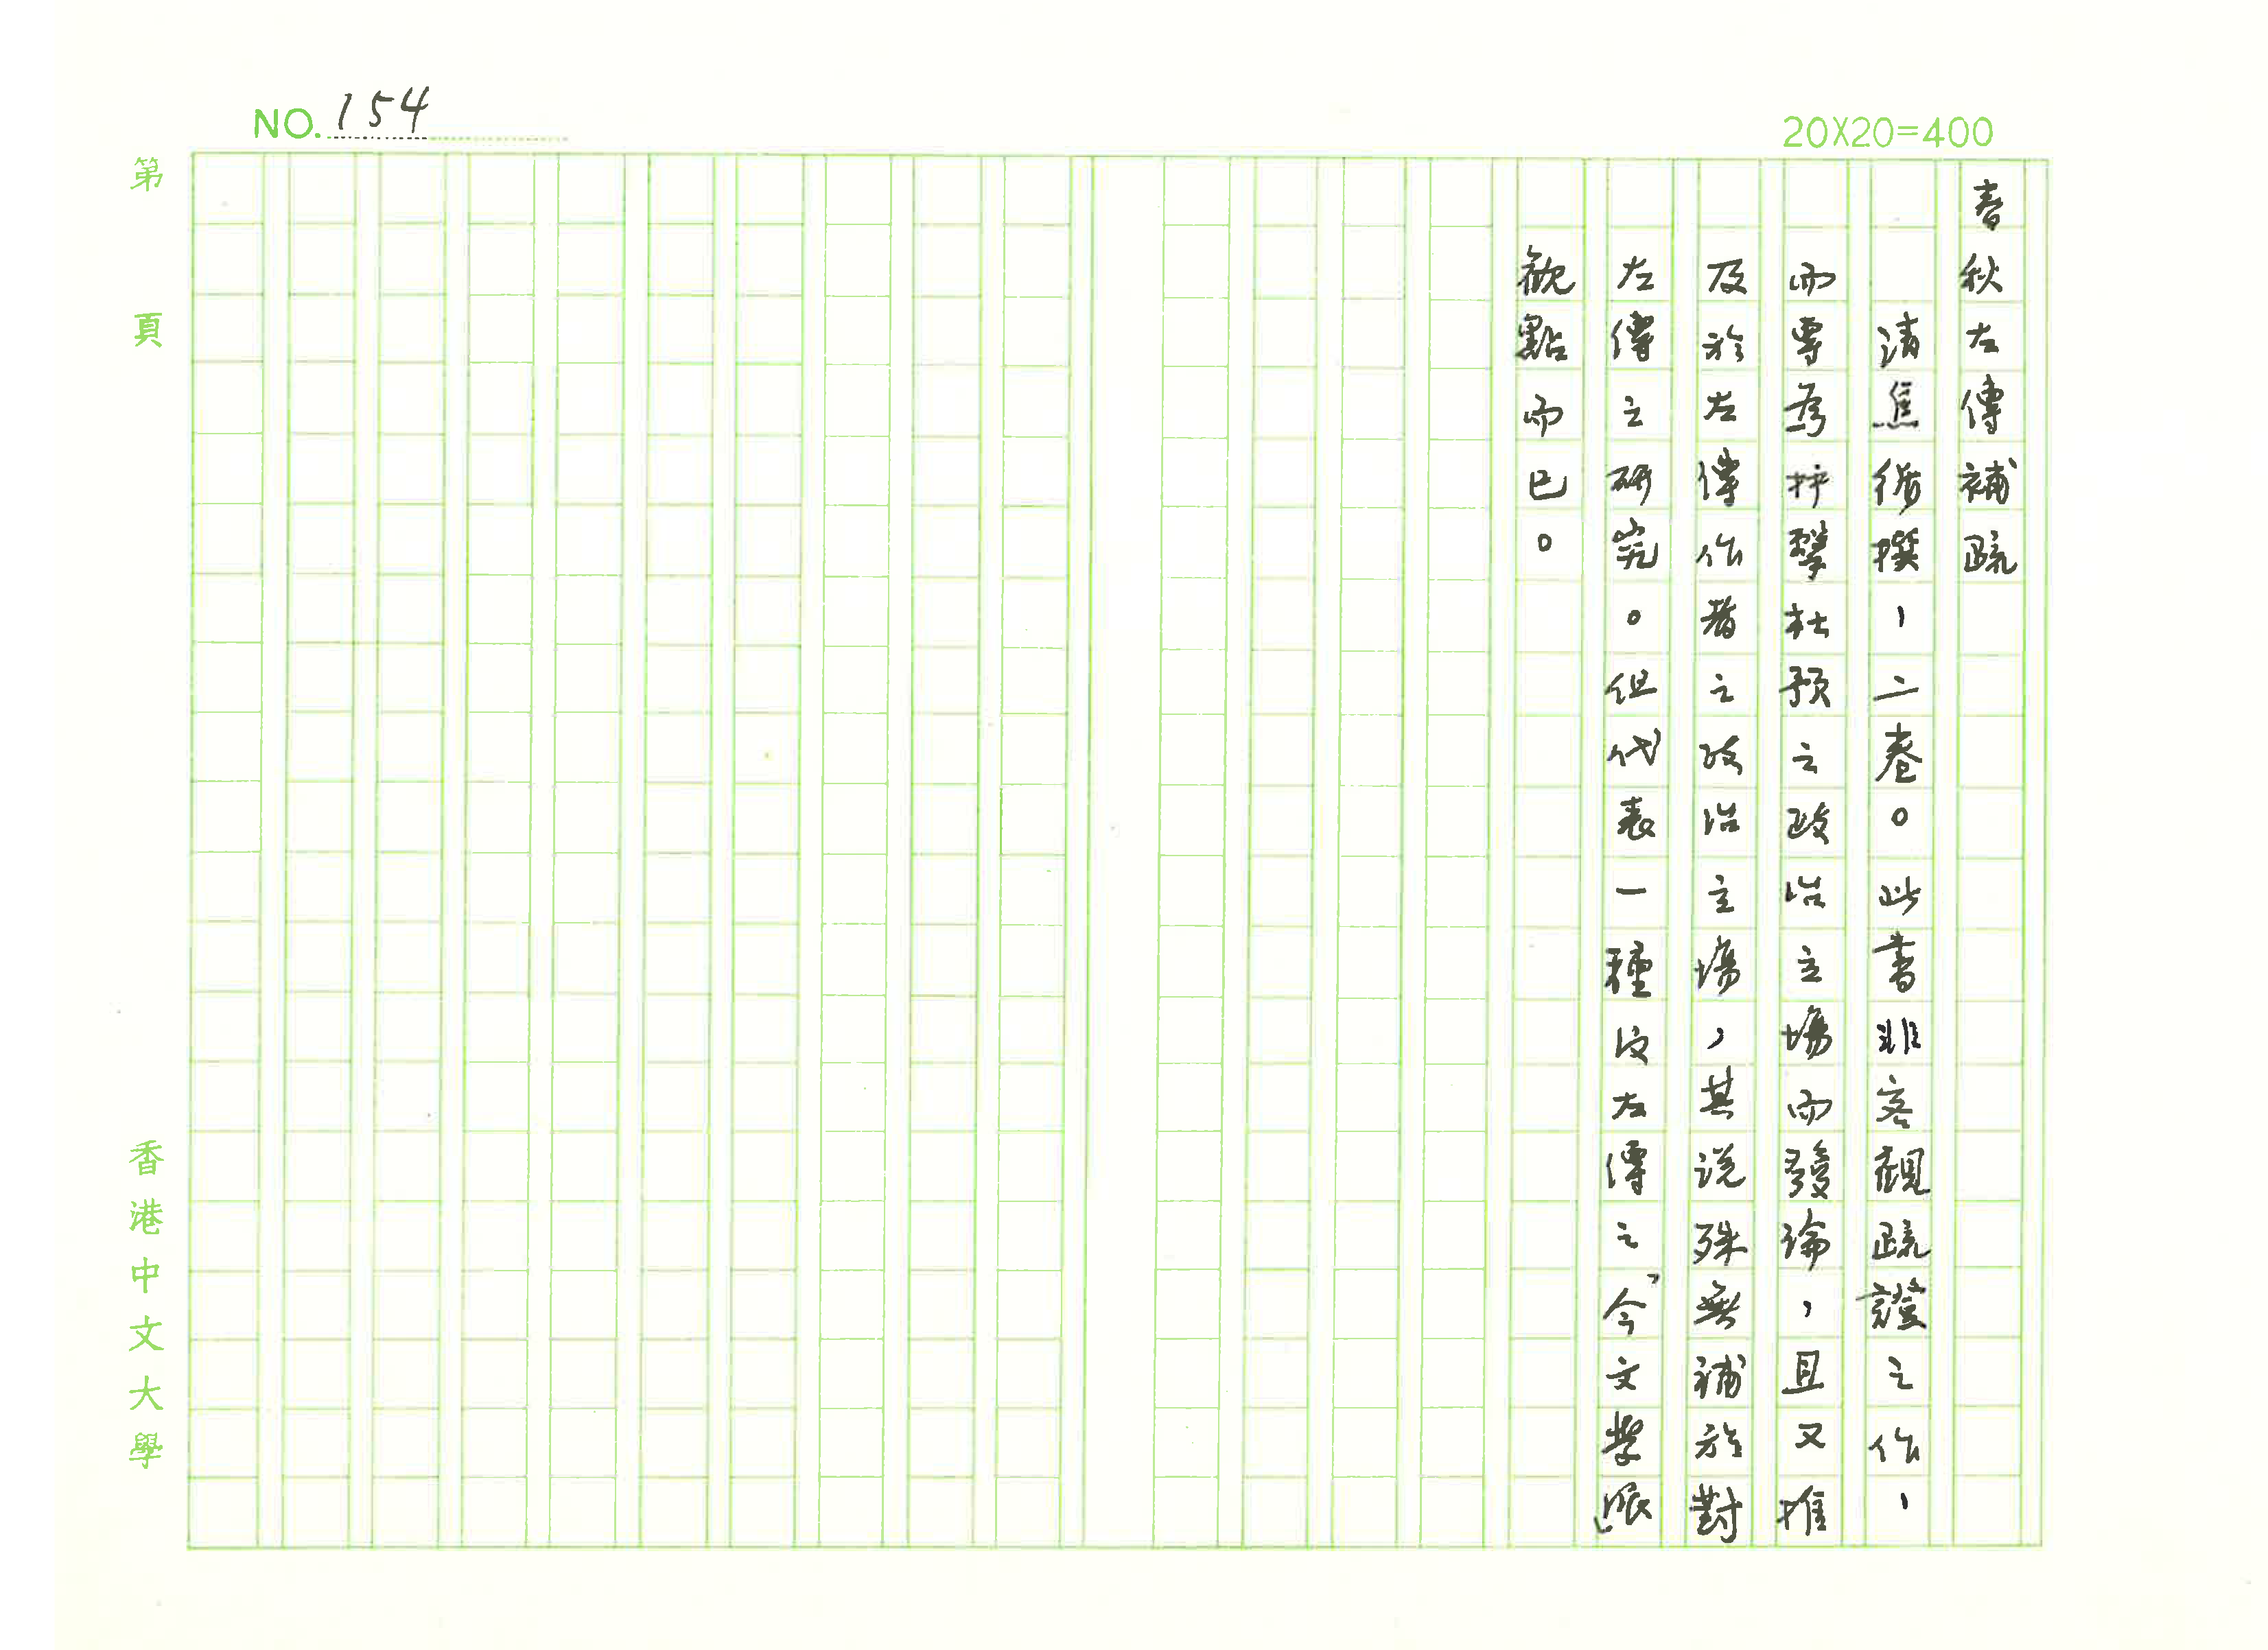 NO. 154
20X20=400
春秋左傳補疏
清焦循撰，二卷。此書非客觀疏證之作，
而專為抨擊杜預之政治立場而發論，且又推
及於左傳作者之政治立場，其説殊無補於對
左傳之研究。但代表一種後左傳之「今文學眼」
觀點而已。
第 頁
香港中文大學